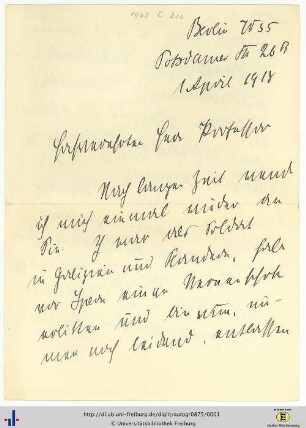 1960 C 210
Berlin W 35
Potsdamer Str 26B
1 April 1918
Hochverehrter Herr Professor
Nach langer Zeit wende
ich mich einmal wieder an
Sie. Ich war als Soldat
in Galizien und Flandern, habe
vor Ypern einen Nervenschok
erlitten und bin nun, im-
mer noch leidend, entlassen
http://dl.ub.uni-freiburg.de/diglit/autogr0875/0001
© Universitätsbibliothek Freiburg